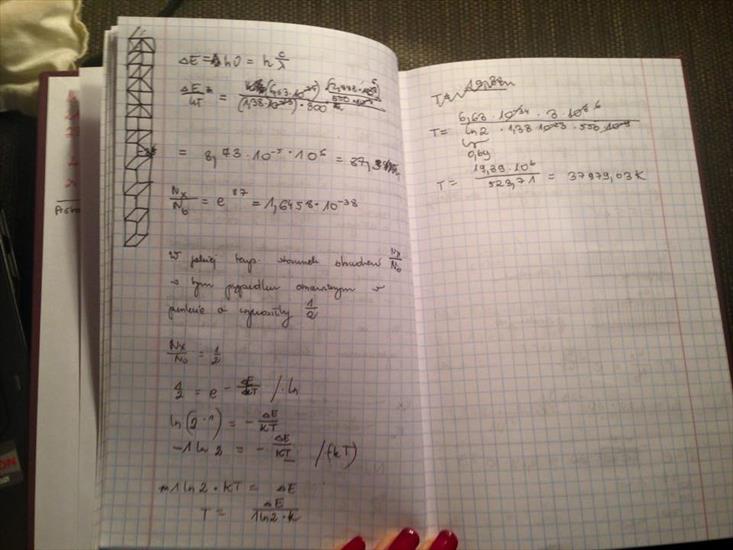 ΔE = hυ = h c/λ
ΔE/kT = (6,63·10⁻³⁴) · (2,998·10⁸) / (1,38·10⁻²³) · 300 · 550·10⁻⁹
= 8,73·10⁻⁵ · 10⁶ = 87,3
Nx/N0 = e⁸⁷ = 1,6458·10⁻³⁸
W jakiej temp. stosunek obsadzeń Nx/N0
w tym przypadku omawianym w
punkcie a wynosiłby 1/2
Nx/N0 = 1/2
1/2 = e^(-ΔE/kT) / · ln
ln(2⁻¹) = - ΔE/kT
-1 ln 2 = - ΔE/kT /(kT)
1 ln 2 · kT = ΔE
T = ΔE / 1 ln 2 · k
T = 6,63·10⁻³⁴ · 3·10⁸ / ln 2 · 1,38·10⁻²³ · 550·10⁻⁹
0,69
T = 19,89·10⁶ / 523,71 = 37979,03 K